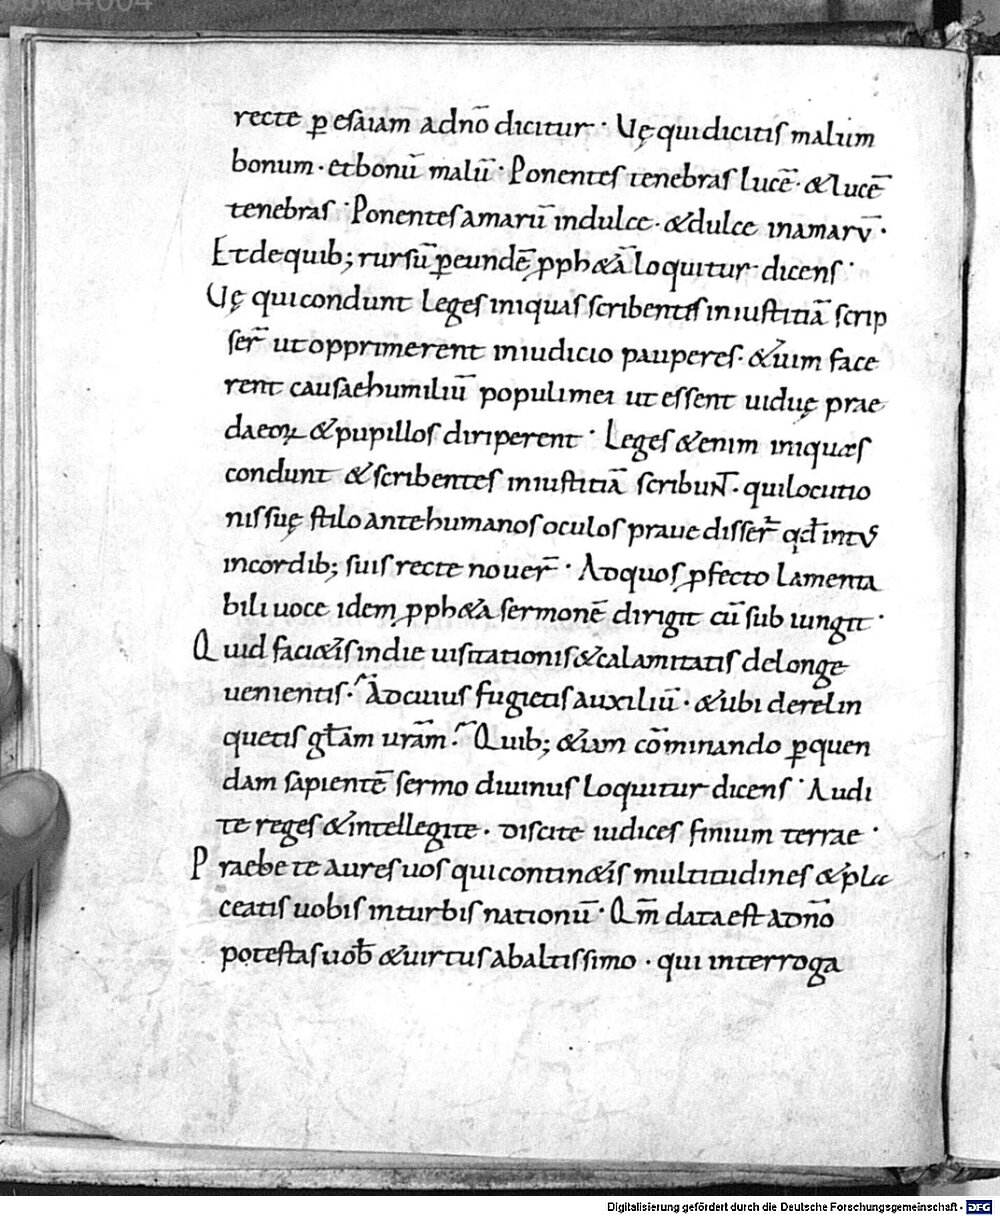 recte ꝑ esaiam adnō dicitur · Uę qui dicitis malum
bonum · et bonū malū · Ponentes tenebras lucē · & lucē
tenebras · Ponentes amarū in dulce · & dulce in amarū ·
Et de quib; rursū ꝑ eundē ꝓph&ā loquitur dicens ·
Uę qui condunt leges iniquas scribentes iniustitiā scrip
ser̄ ut opprimerent in iudicio pauperes · & uim face
rent causae humiliū populi mei ut essent uiduę prae
da eoꝝ & pupillos diriperent · Leges &enim iniquas
condunt & scribentes iniustitiā scribunt · qui locutio
nis suę stilo ante humanos oculos praue disser̄ qđ intus
in cordib; suis recte nouer̄ · Ad quos ꝓfecto lamenta
bili uoce idem ꝓph&a sermonē dirigit cū subiungit ·
Quid faci&is in die uisitationis & calamitatis de longe
uenientis · Ad cuius fugi&is auxiliū · & ubi derelin
quetis gꝉam ur̄am · Quib; &iam cōminando ꝑ quen
dam sapientē sermo diuinus loquitur dicens · Audi
te reges & intellegite · discite iudices finium terrae ·
Praebete aures uos qui contin&is multitudines & pla
ceatis uobis in turbis nationū · Qm̄ data est a dn̄o
potestas uob̄ & uirtus ab altissimo · qui interroga
Digitalisierung gefördert durch die Deutsche Forschungsgemeinschaft - DFG